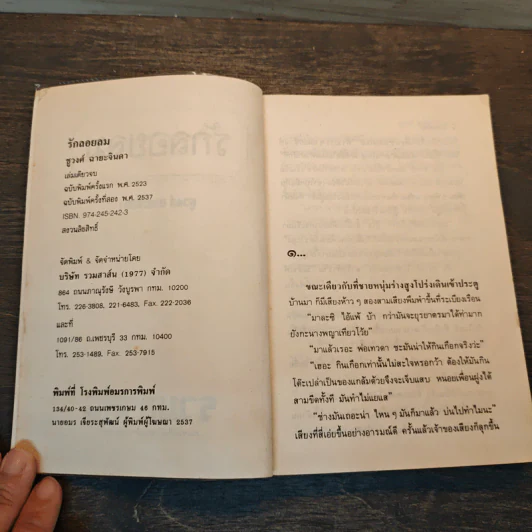 รักลอยลม
ชูวงศ์ ฉายะจินดา
เล่มเดียวจบ
ฉบับพิมพ์ครั้งแรก พ.ศ. 2523
ฉบับพิมพ์ครั้งที่สอง พ.ศ. 2537
ISBN 974-245-242-3
สงวนลิขสิทธิ์
จัดพิมพ์ & จัดจำหน่ายโดย
บริษัท รวมสาส์น (1977) จำกัด
864 ถนนภาณุรังษี วังบูรพา กทม. 10200
โทร. 226-3808, 221-6483, Fax. 222-2036
และที่
1091/86 ถ.เพชรบุรี 33 กทม. 10400
โทร. 253-1489, Fax. 253-7915
พิมพ์ที่ โรงพิมพ์อมรการพิมพ์
134/40-42 ถนนเพชรเกษม 46 กทม.
นายอมร เจียระสุพัฒน์ ผู้พิมพ์ผู้โฆษณา 2537
๑...
ขณะเดียวกับที่ชายหนุ่มร่างสูงโปร่งเดินเข้าประตู
บ้านมา ก็มีเสียงห้าว ๆ สองสามเสียงพึมพำขึ้นที่ระเบียงเรือน
“มาละซิ ไอ้แพ้ บ้า กว่ามันจะยุรยาตรมาได้ทำมาก
ยังกะนางพญาเทียวโว้ย”
“มาแล้วเรอะ พ่อเทวดา ชะมันน่าให้กินเกือกจริงว่ะ”
“เฮอะ กินเกือกเท่านั้นไม่สะใจหรอกว้า ต้องให้มันกิน
โต๊ะเปล่าเป็นของแกล้มด้วยจึงจะเจ็บแสบ หนอยเพื่อนฝูงได้
สามขีดทั้งที มันทำไม่แยแส”
“ช่างมันเถอะน่า ไหน ๆ มันก็มาแล้ว บ่นไปทำไมนะ”
เสียงที่สี่เอ่ยขึ้นอย่างอารมณ์ดี ครั้นแล้วเจ้าของเสียงก็ลุกขึ้น